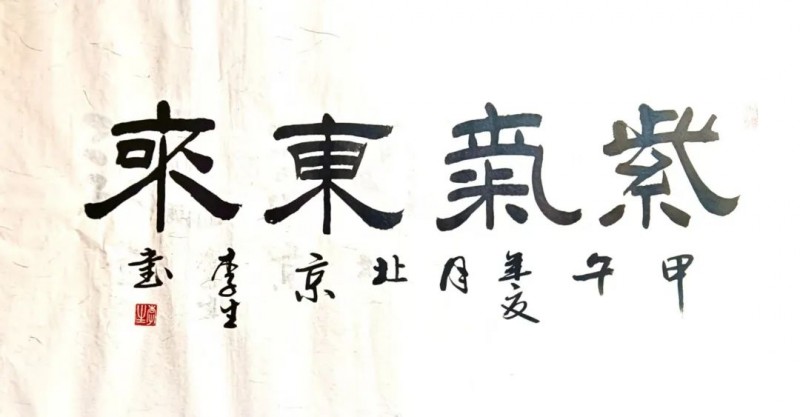 紫氣東來
甲午年夏月北京李生書